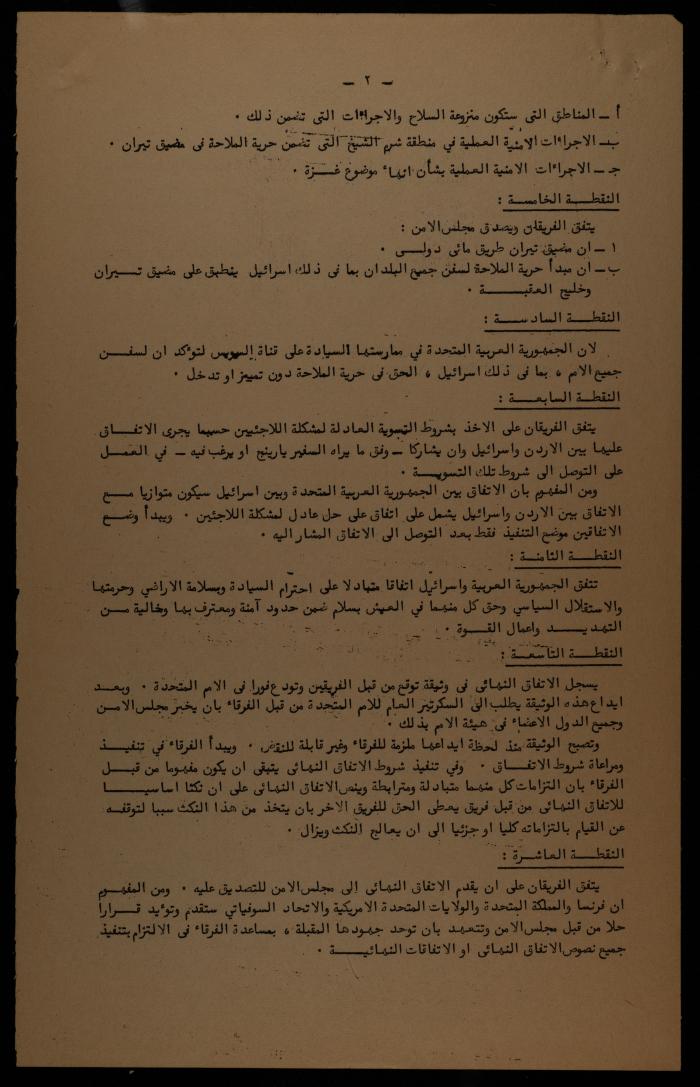 — ٢ —
أ — المناطق التى ستكون منزوعة السلاح والاجراءات التى تضمن ذلك .
ب — الاجراءات الامنية العملية في منطقة شرم الشيخ التى تضمن حرية الملاحة فى مضيق تيران .
جـ — الاجراءات الامنية العملية بشأن انهاء موضوع غزة .
النقطة الخامسة :
يتفق الفريقان ويصدق مجلس الامن :
١ — ان مضيق تيران طريق مائى دولى .
ب — ان مبدأ حرية الملاحة لسفن جميع البلدان بما فى ذلك اسرائيل ينطبق على مضيق تيران
وخليج العقبة .
النقطة السادسة :
لان الجمهورية العربية المتحدة في ممارستها السيادة على قناة السويس لتؤكد ان لسفن
جميع الامم ، بما فى ذلك اسرائيل ، الحق فى حرية الملاحة دون تمييز او تدخل .
النقطة السابعة :
يتفق الفريقان على الاخذ بشروط التسوية العادلة لمشكلة اللاجئيين حسبما يجرى الاتفاق
عليها بين الاردن واسرائيل وان يشاركا — وفق ما يراه السفير يارينج او يرغب فيه — في العمل
على التوصل الى شروط تلك التسوية .
ومن المفهوم بان الاتفاق بين الجمهورية العربية المتحدة وبين اسرائيل سيكون متوازيا مع
الاتفاق بين الاردن واسرائيل يشمل على اتفاق على حل عادل لمشكلة اللاجئين . ويبدأ وضع
الاتفاقين موضع التنفيذ فقط بعد التوصل الى الاتفاق المشار اليه .
النقطة الثامنة :
تتفق الجمهورية العربية واسرائيل اتفاقا متبادلا على احترام السيادة وبسلامة الاراضي وحرمتها
والاستقلال السياسي وحق كل منهما في العيش بسلام ضمن حدود آمنة ومعترف بها وخالية من
التهديد واعمال القوة .
النقطة التاسعة :
يسجل الاتفاق النهائى فى وثيقة توقع من قبل الفريقين وتودع فورا فى الامم المتحدة . وبعد
ايداع هذه الوثيقة يطلب الى السكرتير العام للامم المتحدة من قبل الفرقاء بان يخبر مجلس الامن
وجميع الدول الاعضاء فى هيئة الامم بذلك .
وتصبح الوثيقة منذ لحظة ايداعها ملزمة للفرقاء وغير قابلة للنقض . ويبدأ الفرقاء في تنفيذ
ومراعاة شروط الاتفاق . وفي تنفيذ شروط الاتفاق النهائى يتبقى ان يكون مفهوما من قبل
الفرقاء بان التزامات كل منهما متبادلة ومترابطة وينص الاتفاق النهائى على ان نكثا اساسيا
للاتفاق النهائى من قبل فريق يعطى الحق للفريق الاخر بان يتخذ من هذا النكث سببا لتوقفه
عن القيام بالتزاماته كليا او جزئيا الى ان يعالج النكث ويزال .
النقطة العاشرة :
يتفق الفريقان على ان يقدم الاتفاق النهائى إلى مجلس الامن للتصديق عليه . ومن المفهوم
ان فرنسا والمملكة المتحدة والولايات المتحدة الامريكية والاتحاد السوفياتي ستقدم وتؤيد قرارا
حلا من قبل مجلس الامن وتتعهد بان توحد جهودها المقبلة ، بمساعدة الفرقاء فى الالتزام بتنفيذ
جميع نصوص الاتفاق النهائى او الاتفاقات النهائية .